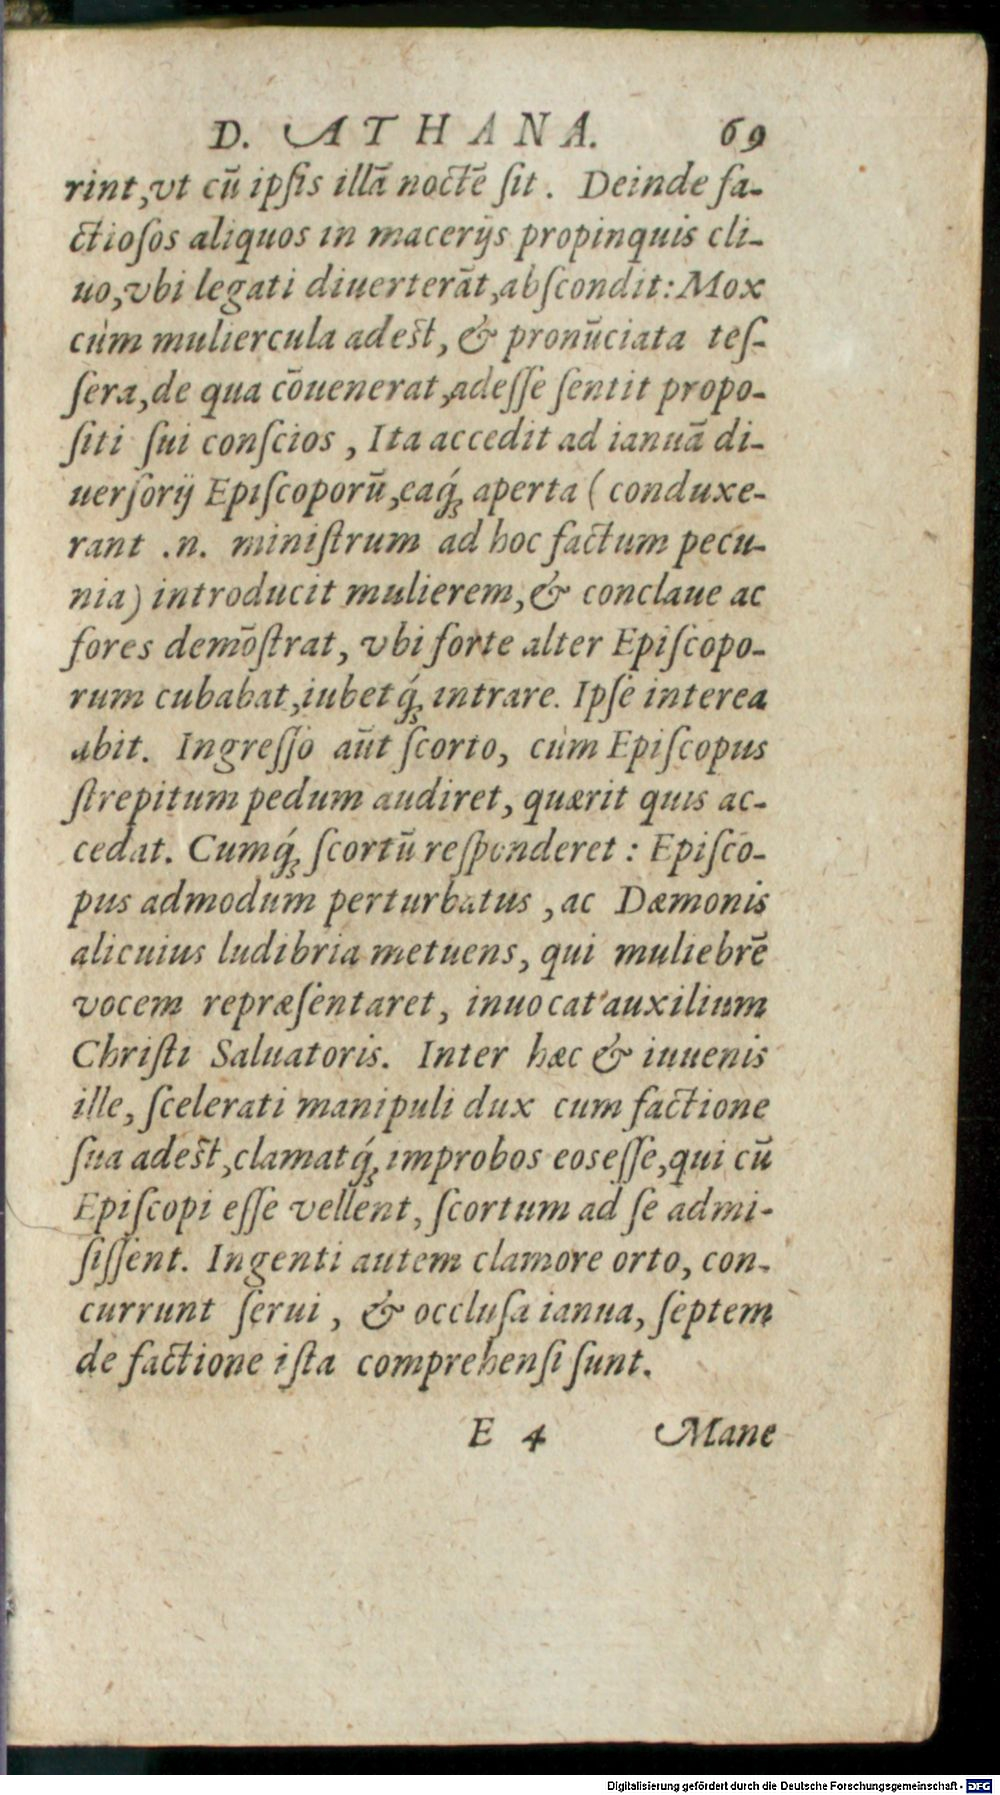 D. ATHANA. 69
rint,vt cū ipſis illā noctē ſit. Deinde fa-
ctioſos aliquos in macerijs propinquis cli-
uo,vbi legati diuerterāt,abſcondit: Mox
cùm muliercula adest, & pronūciata teſ-
ſera,de qua cōuenerat,adeſſe ſentit propo-
ſiti ſui conſcios, Ita accedit ad ianuā di-
uerſorij Epiſcoporū,eaq́; aperta (conduxe-
rant .n. miniſtrum ad hoc factum pecu-
nia) introducit mulierem,& conclaue ac
fores demōſtrat, vbi forte alter Epiſcopo-
rum cubabat,iubetq́; intrare. Ipſe interea
abit. Ingreſſo aūt ſcorto, cùm Epiſcopus
ſtrepitum pedum audiret, quærit quis ac-
cedat. Cumq́; ſcortū reſponderet: Epiſco-
pus admodum perturbatus, ac Dæmonis
alicuius ludibria metuens, qui muliebrē
vocem repræſentaret, inuocat auxilium
Chriſti Saluatoris. Inter hæc & iuuenis
ille, ſcelerati manipuli dux cum factione
ſua adest,clamatq́; improbos eos eſſe,qui cū
Epiſcopi eſſe vellent, ſcortum ad ſe admi-
ſiſſent. Ingenti autem clamore orto, con-
currunt ſerui, & occluſa ianua, ſeptem
de factione iſta comprehenſi ſunt.
E 4 Mane
Digitalisierung gefördert durch die Deutsche Forschungsgemeinschaft - DFG